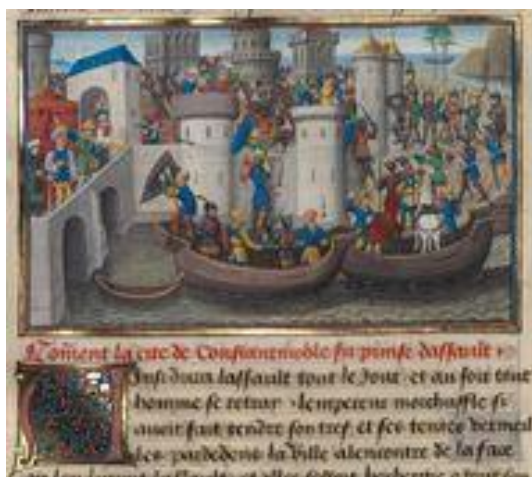 Coment la cite de Constantinoble fu prinse dassault
Ainsi dura lassault tout le Jour et au soir tout
homme se retrai lempereur morchuffle si
auoit fait tendre son tref et ses tentes vermeil
les pardedens la ville alencontre de la face